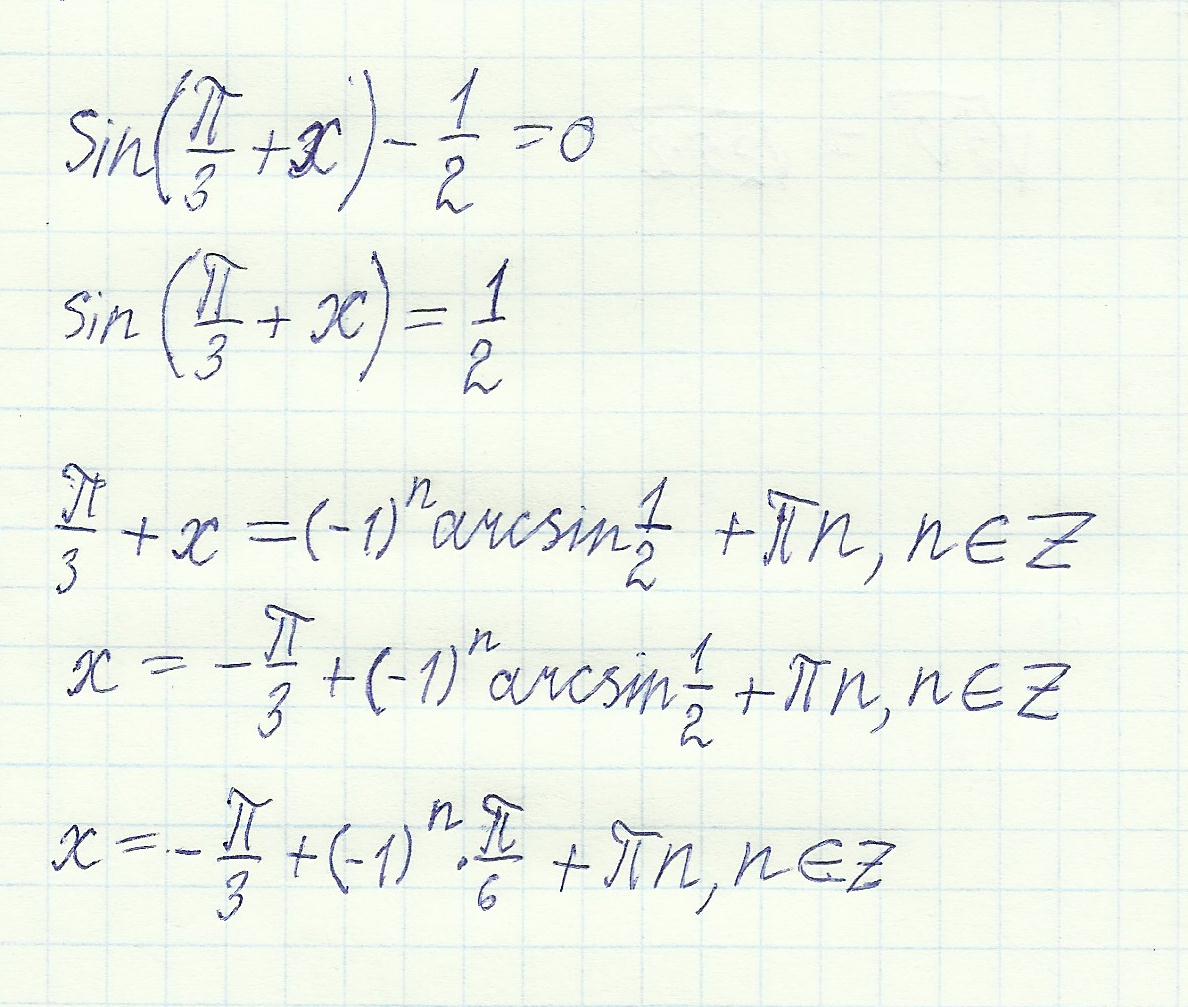 sin(π/3 + x) - 1/2 = 0
sin (π/3 + x) = 1/2
π/3 + x = (-1)ⁿ arcsin 1/2 + πn, n ∈ Z
x = - π/3 + (-1)ⁿ arcsin 1/2 + πn, n ∈ Z
x = - π/3 + (-1)ⁿ · π/6 + πn, n ∈ Z